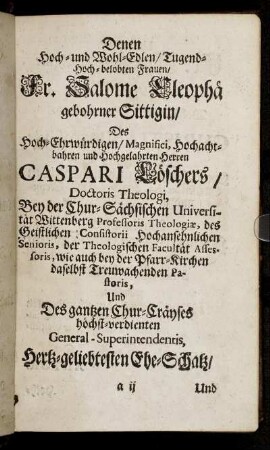 Denen
Hoch- und Wohl-Edlen/ Tugend-
Hoch-belobten Frauen/
Fr. Salome Cleophä
gebohrner Sittigin/
Des
Hoch-Ehrwürdigen/ Magnifici, Hochacht-
bahren und Hochgelahrten Herren
CASPARI Löschers/
Doctoris Theologi,
Bey der Chur-Sächsischen Universi-
tät Wittenberg Professoris Theologiæ, des
Geistlichen Consistorii Hochansehnlichen
Senioris, der Theologischen Facultät Asses-
soris, wie auch bey der Pfarr-Kirchen
daselbst Treuwachenden Pa-
storis,
Und
Des gantzen Chur-Cräyses
höchst-verdienten
General-Superintendentis,
Hertz-geliebtesten Ehe-Schatz/
a ij Und